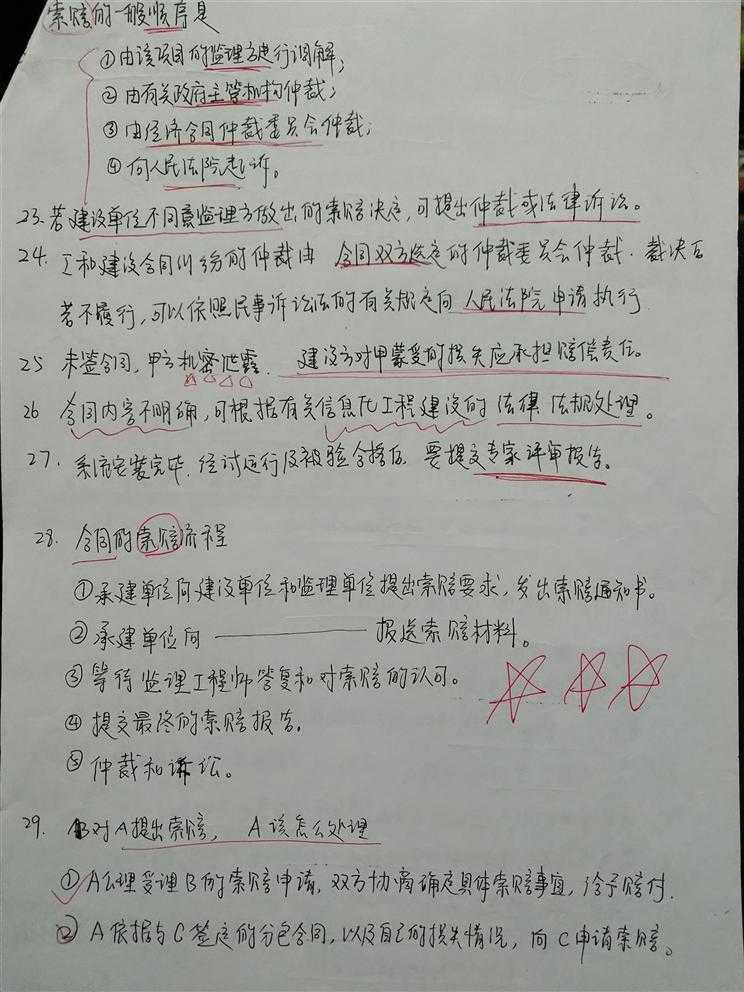 索赔的一般顺序是
①由该项目的监理方进行调解;
②由有关政府主管机构仲裁;
③由经济合同仲裁委员会仲裁;
④向人民法院起诉。
23.若建设单位不同意监理方做出的索赔决定,可提出仲裁或法律诉讼。
24.工和建设合同纠纷的仲裁由 合同双方选定的仲裁委员会仲裁.裁决后
若不履行,可以依照民事诉讼法的有关规定向 人民法院申请执行
25 未签合同,甲方机密泄露. 建设方对甲蒙受的损失应承担赔偿责任。
26 合同内容不明确,可根据有关信息化工程建设的 法律 法规处理。
27. 系统安装完毕.经试运行及被验合格后 要提交专家评审报告。
28. 合同的索赔流程
①承建单位向建设单位和监理单位提出索赔要求,发出索赔通知书。
②承建单位向 ———— 报送索赔材料。
③等待监理工程师答复和对索赔的认可。
④提交最终的索赔报告.
⑤仲裁和诉讼。
29. B对A提出索赔, A该怎么处理
①A公理受理B的索赔申请,双方协商确定具体索赔事宜,给予赔付.
②A依据与C签定的分包合同,以及自己的损失情况,向C申请索赔。